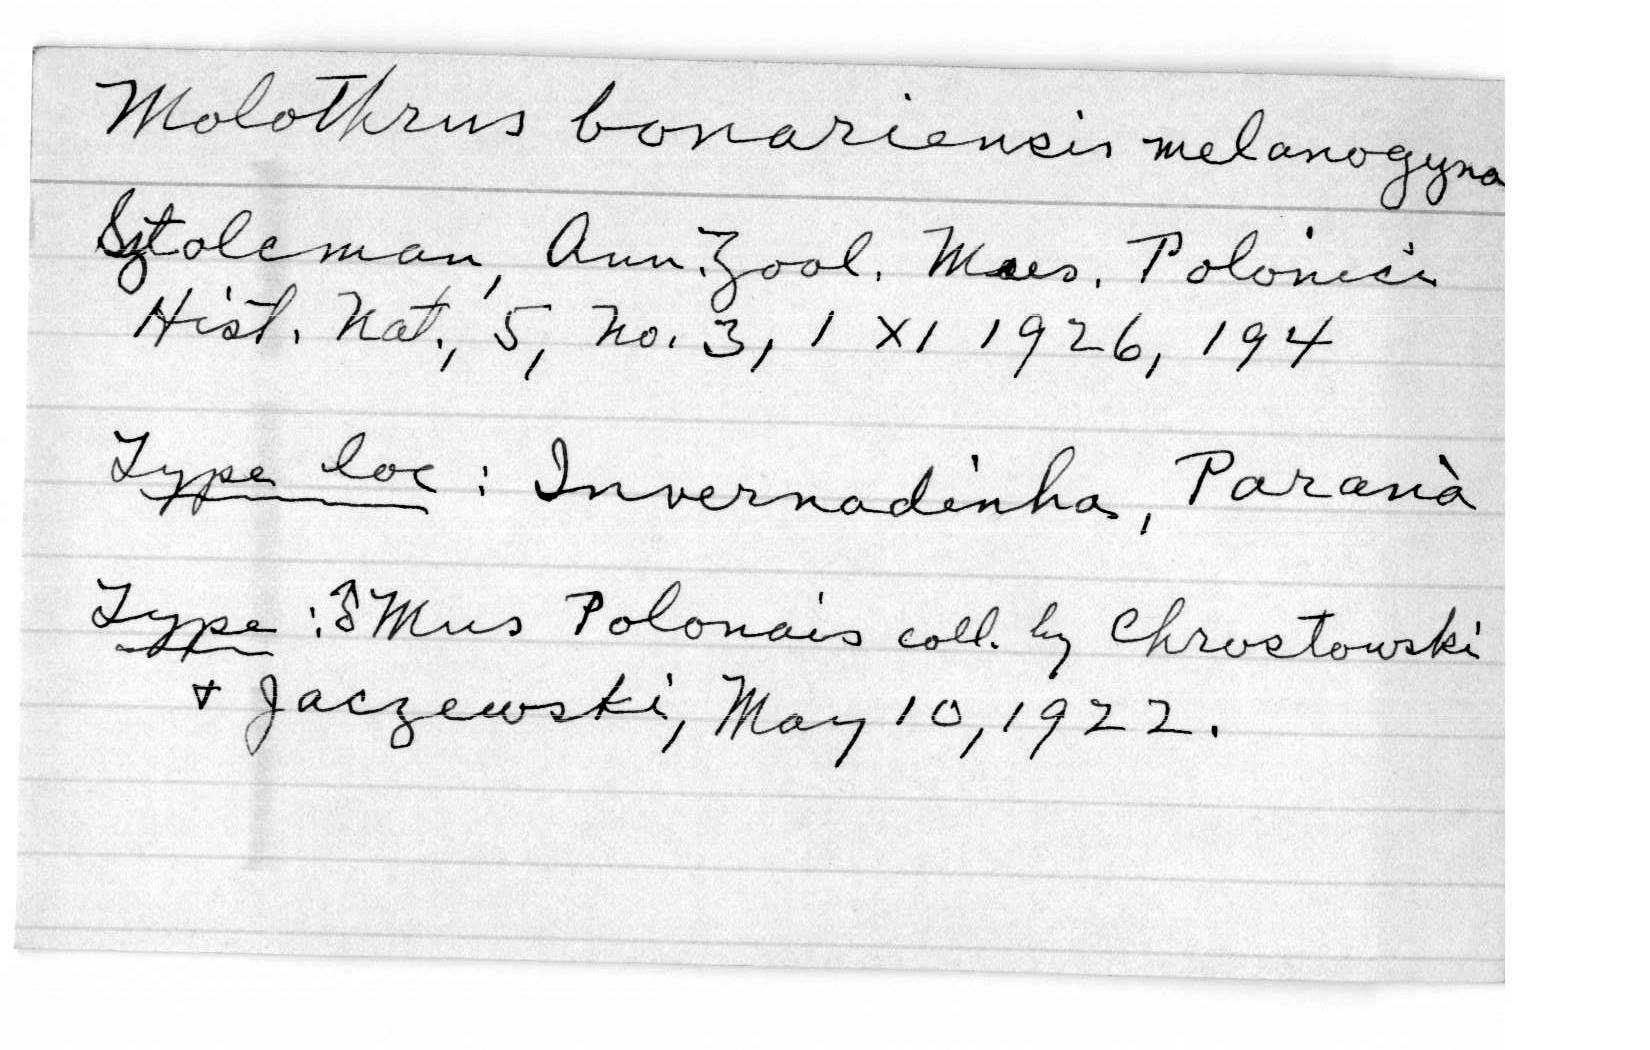 Molothrus bonariensis melanogyna
Sztolcman, Ann. Zool. Mus. Polonici
Hist. Nat., 5, no. 3, 1 XI 1926, 194
Type loc : Invernadinha, Paranà
Type : ♂ Mus Polonais coll. by Chrostowski
+ Jaczewski, May 10, 1922.